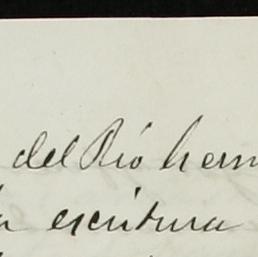 del Rió herm
escritura